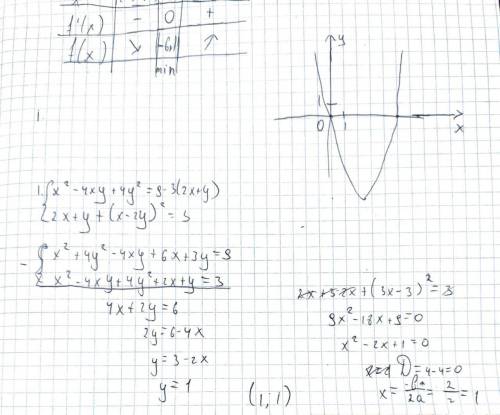 f'(x) - 0 +
f(x) ↘ -6,1 ↗
min
y
1
0 1 x
1.
1. { x² - 4xy + 4y² = 9 - 3(2x+y)
2x + y + (x-2y)² = 3
- { x² + 4y² - 4xy + 6x + 3y = 9
x² - 4xy + 4y² + 2x + y = 3
4x + 2y = 6
2y = 6 - 4x
y = 3 - 2x
y = 1
(1; 1)
+ (3x-3)² = 3
9x² - 18x + 9 = 0
x² - 2x + 1 = 0
D = 4 - 4 = 0
x = -b/2a = 2/2 = 1